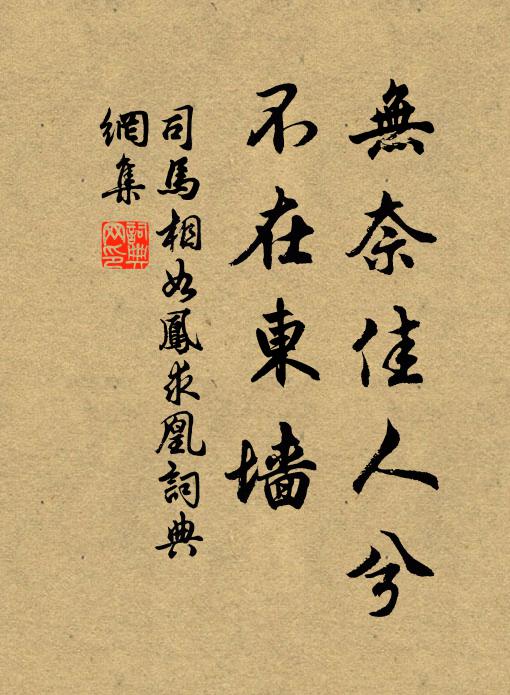 無奈佳人兮
不在東墙
司馬相如鳳求凰詞典
網集
詞典
网印